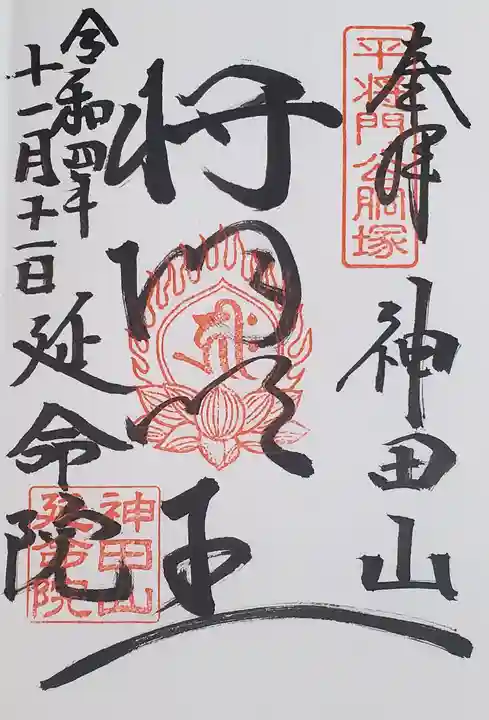 奉拝
平将門公胴塚
神田山
将門明王
令和四年
十一月十一日
延命院
神田山
延命院